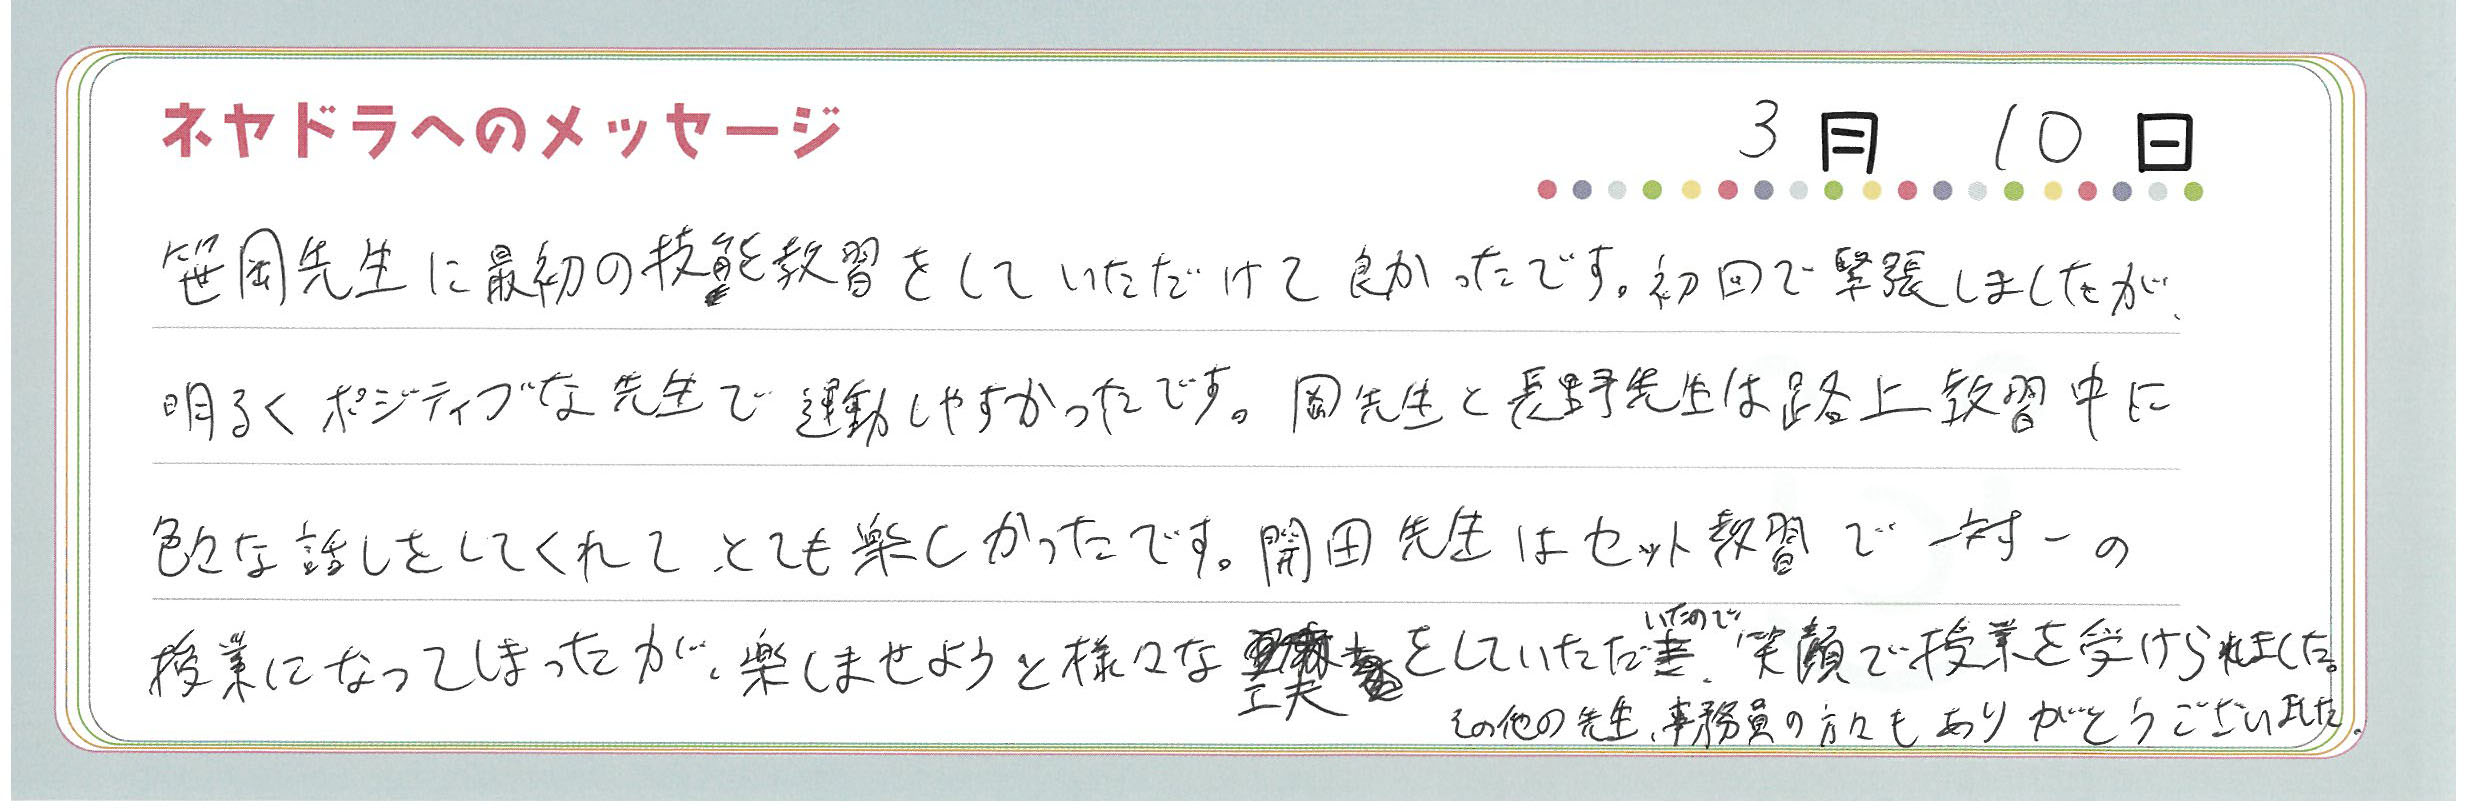 ネヤドラへのメッセージ
3月 10日
笹岡先生に最初の技能教習をしていただけて良かったです。初回で緊張しましたが、
明るくポジティブな先生で運動しやすかったです。岡先生と長野先生は路上教習中に
色々な話しをしてくれて、とても楽しかったです。開田先生はセット教習で一対一の
授業になってしまったが、楽しませようと様々な工夫をしていただいたので、笑顔で授業を受けられました。
その他の先生、事務員の方々もありがとうございました。